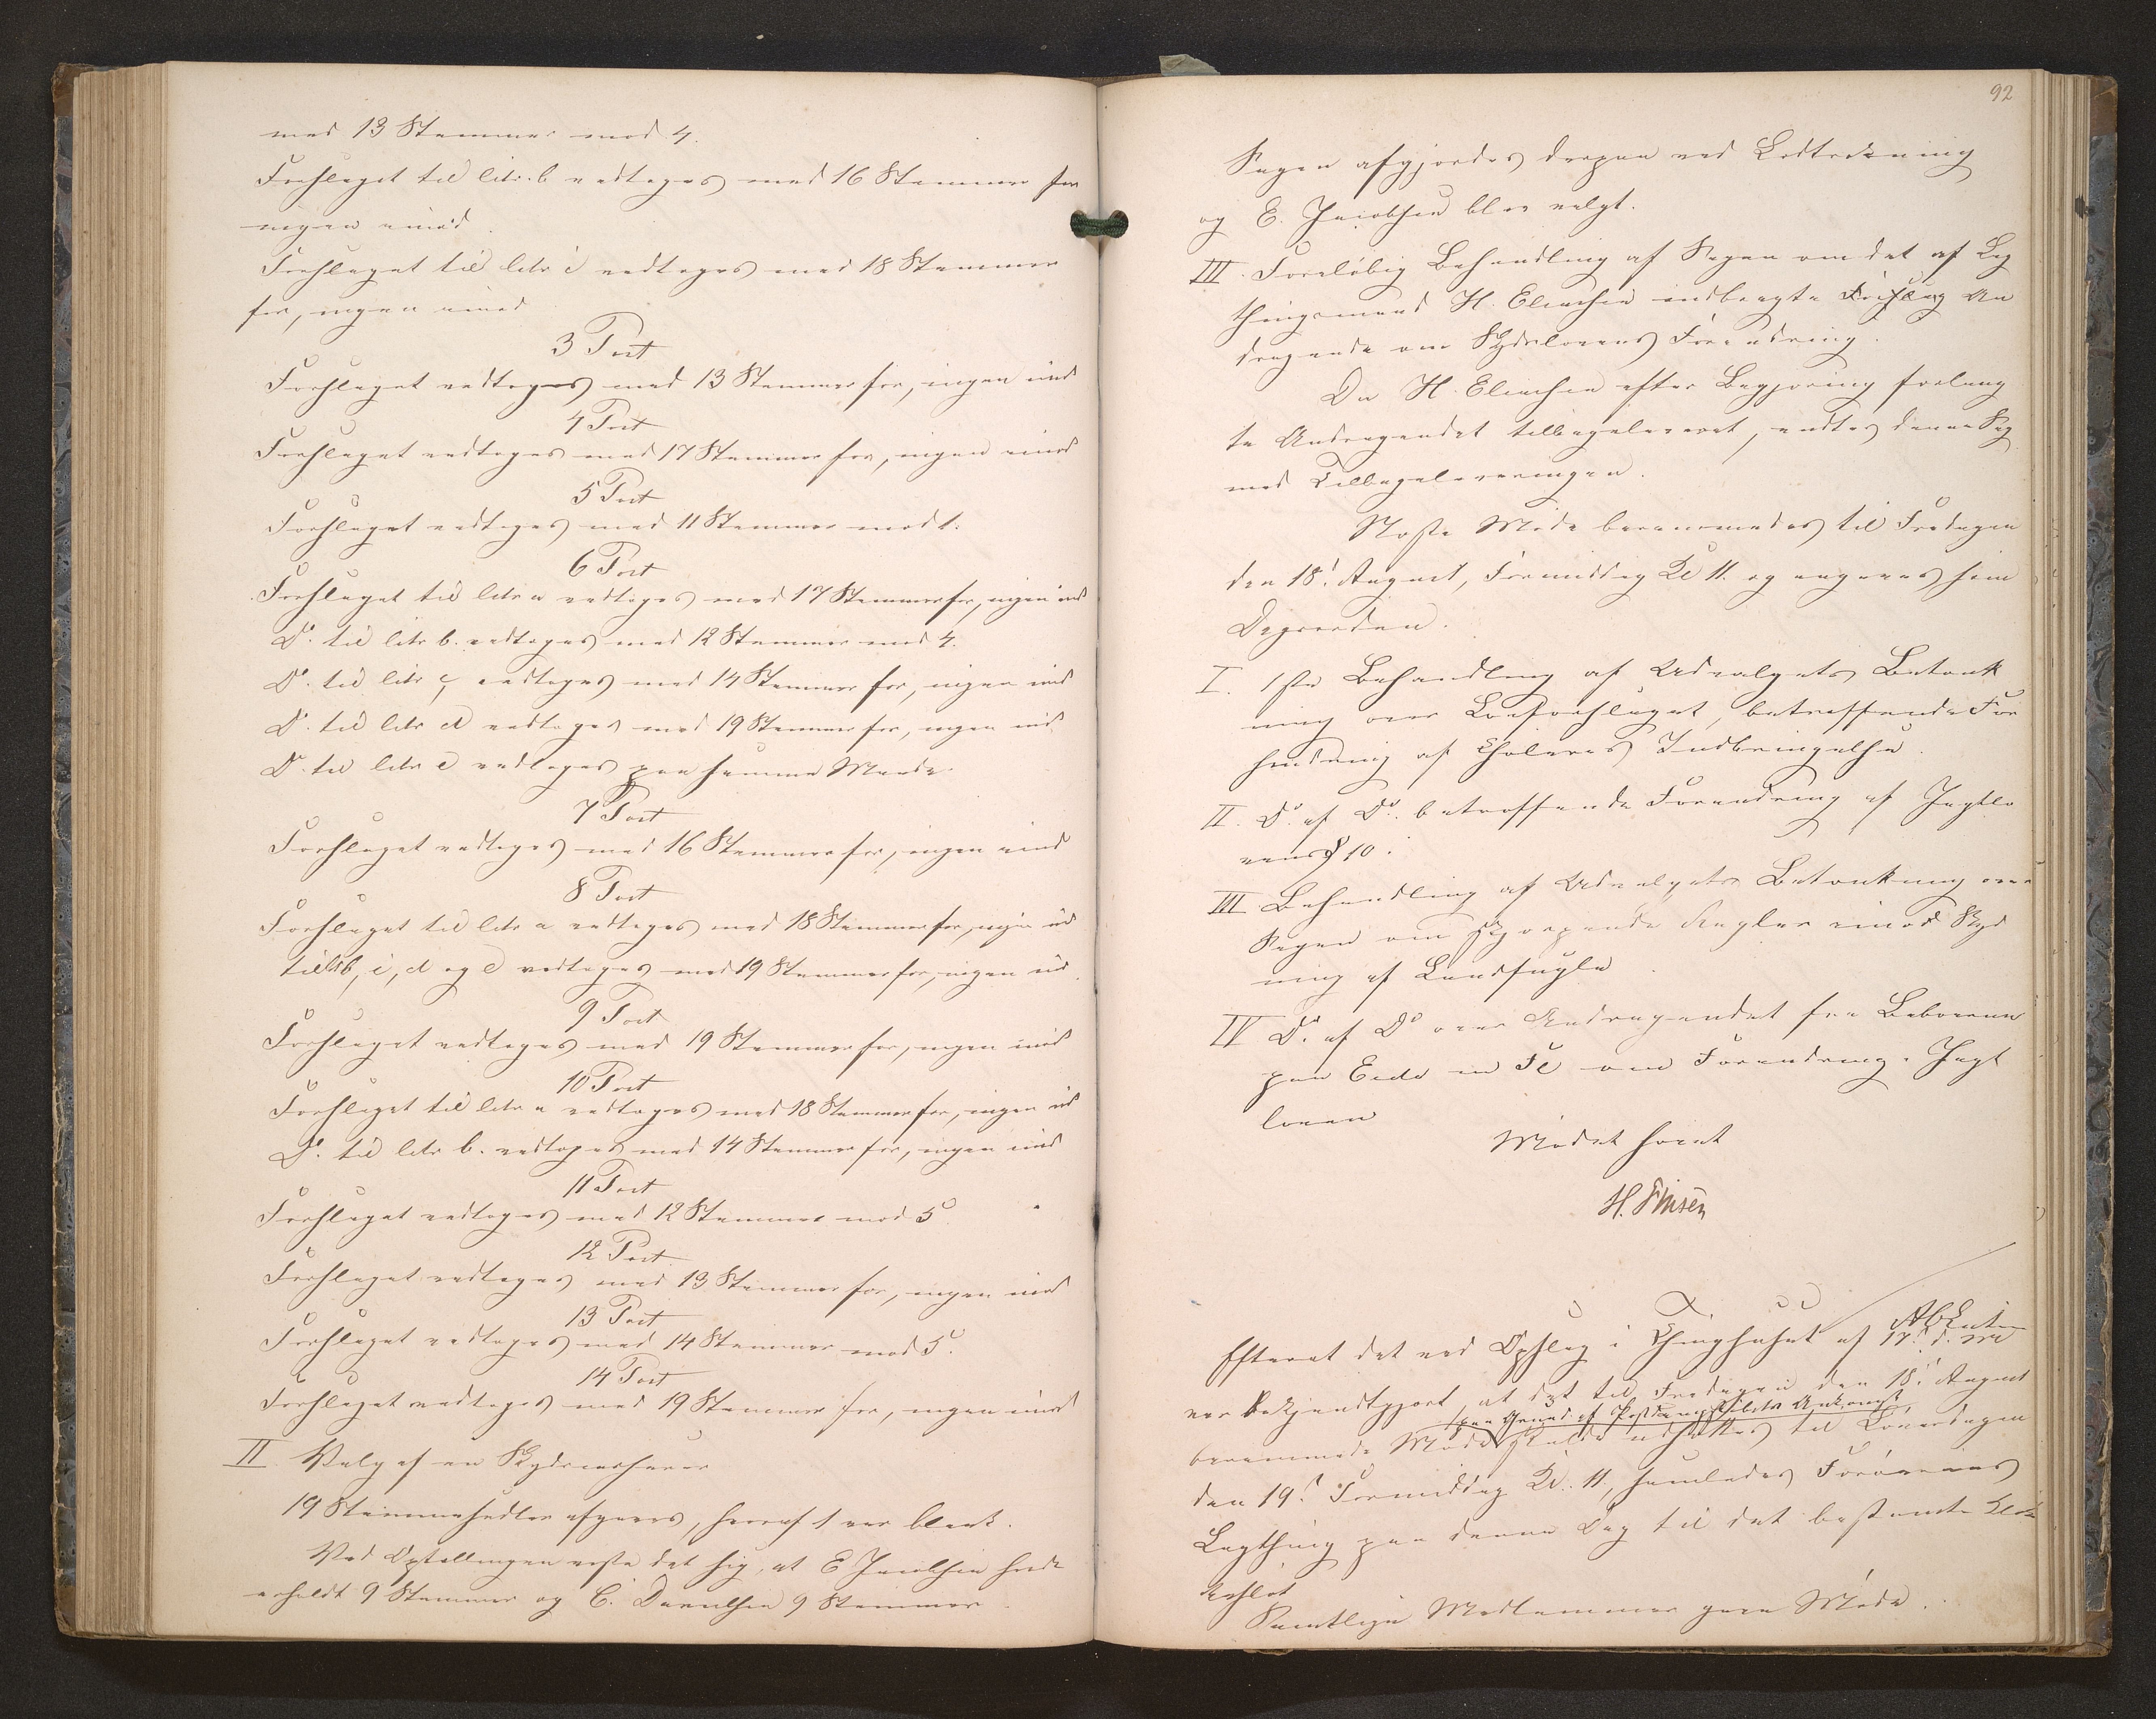 med 13 Stemmer mod 4.
Forslaget til litr. b vedtoges med 16 Stemmer for
ingen imod.
Forslaget til litr c vedtoges med 18 Stemmer
for, ingen imod
3 Post
Forslaget vedtoges med 13 Stemmer for, ingen imod
4 Post
Forslaget vedtoges med 17 Stemmer for, ingen imod
5 Post
Forslaget vedtoges med 11 Stemmer mod 1.
6 Post
Forslaget til litr a vedtoges med 17 Stemmer for, ingen imod
Do. til litr b. vedtoges med 12 Stemmer mod 4.
Do. til litr c, vedtoges med 14 Stemmer for, ingen imod
Do. til litr d vedtoges med 19 Stemmer for, ingen imod
Do. til litr e vedtoges paa samme Maade.
7 Post
Forslaget vedtoges med 16 Stemmer for, ingen imod
8 Post
Forslaget til litr a vedtoges med 18 Stemmer for, ingen imod
til litr b, c, d og e vedtoges med 19 Stemmer for, ingen imod.
9 Post
Forslaget vedtoges med 19 Stemmer for, ingen imod
10 Post
Forslaget til litr a vedtoges med 18 Stemmer for, ingen imod
Do. til litr b. vedtoges med 14 Stemmer for, ingen imod
11 Post
Forslaget vedtoges med 12 Stemmer mod 5
12 Post
Forslaget vedtoges med 13 Stemmer for, ingen imod
13 Post
Forslaget vedtoges med 14 Stemmer mod 3.
14 Post
Forslaget vedtoges med 19 Stemmer for, ingen imod
II. Valg af en Skydsrevisor
19 Stemmesedler afgaves, hvoraf 1 var blank.
Ved Optællingen viste det sig, at E Jacobsen havde
erholdt 9 Stemmer og C. Danielsen 9 Stemmer.
92
Sagen afgjordes derpaa ved Lodtrækning
og E. Jacobsen blev valgt.
III. Foreløbig Behandling af Sagen om det af Lag
thingsmand H. Eliasen indbragte Forslag An
dragende om Skydslovens Forandring.
Da H. Eliasen efter Begjæring forlang
te Andragendet tilbageleveret, endtes denne Sag
med Tilbageleveringen.
Næste Møde berammedes til Fredagen
den 18d August, Formiddag Kl 11. og angaves som
Dagsorden.
I. 1ste Behandling af Udvalgets Betænk
ning over Lovforslaget, betræffende For
hindring af Choleras Indbringelse.
II. Do. af Do. betræffende Forandring af Jagtlo
vens § 10.
III Behandling af Udvalgets Betænkning over
Sagen om skjærpende Regler imod Skyd
ning af Landfugle.
IV Do. af Do over Andragendet fra Beboerne
paa Eide m Fl om Forandring i Jagt
loven
Mødet hævet
H. Finsen
Efterat det ved Opslag i Thinghuset af 17d d. M
var bekjendtgjort, at det til Fredagen den 18d August
paa Grund af Postdampskibets Ankomst
berammede Møde skulde udsættes til Løverdagen
den 19d Formiddag Kl. 11, samledes Færøernes
Lagthing paa denne Dag til det bestemte Klok
keslet
Samtlige Medlemmer gave Møde.